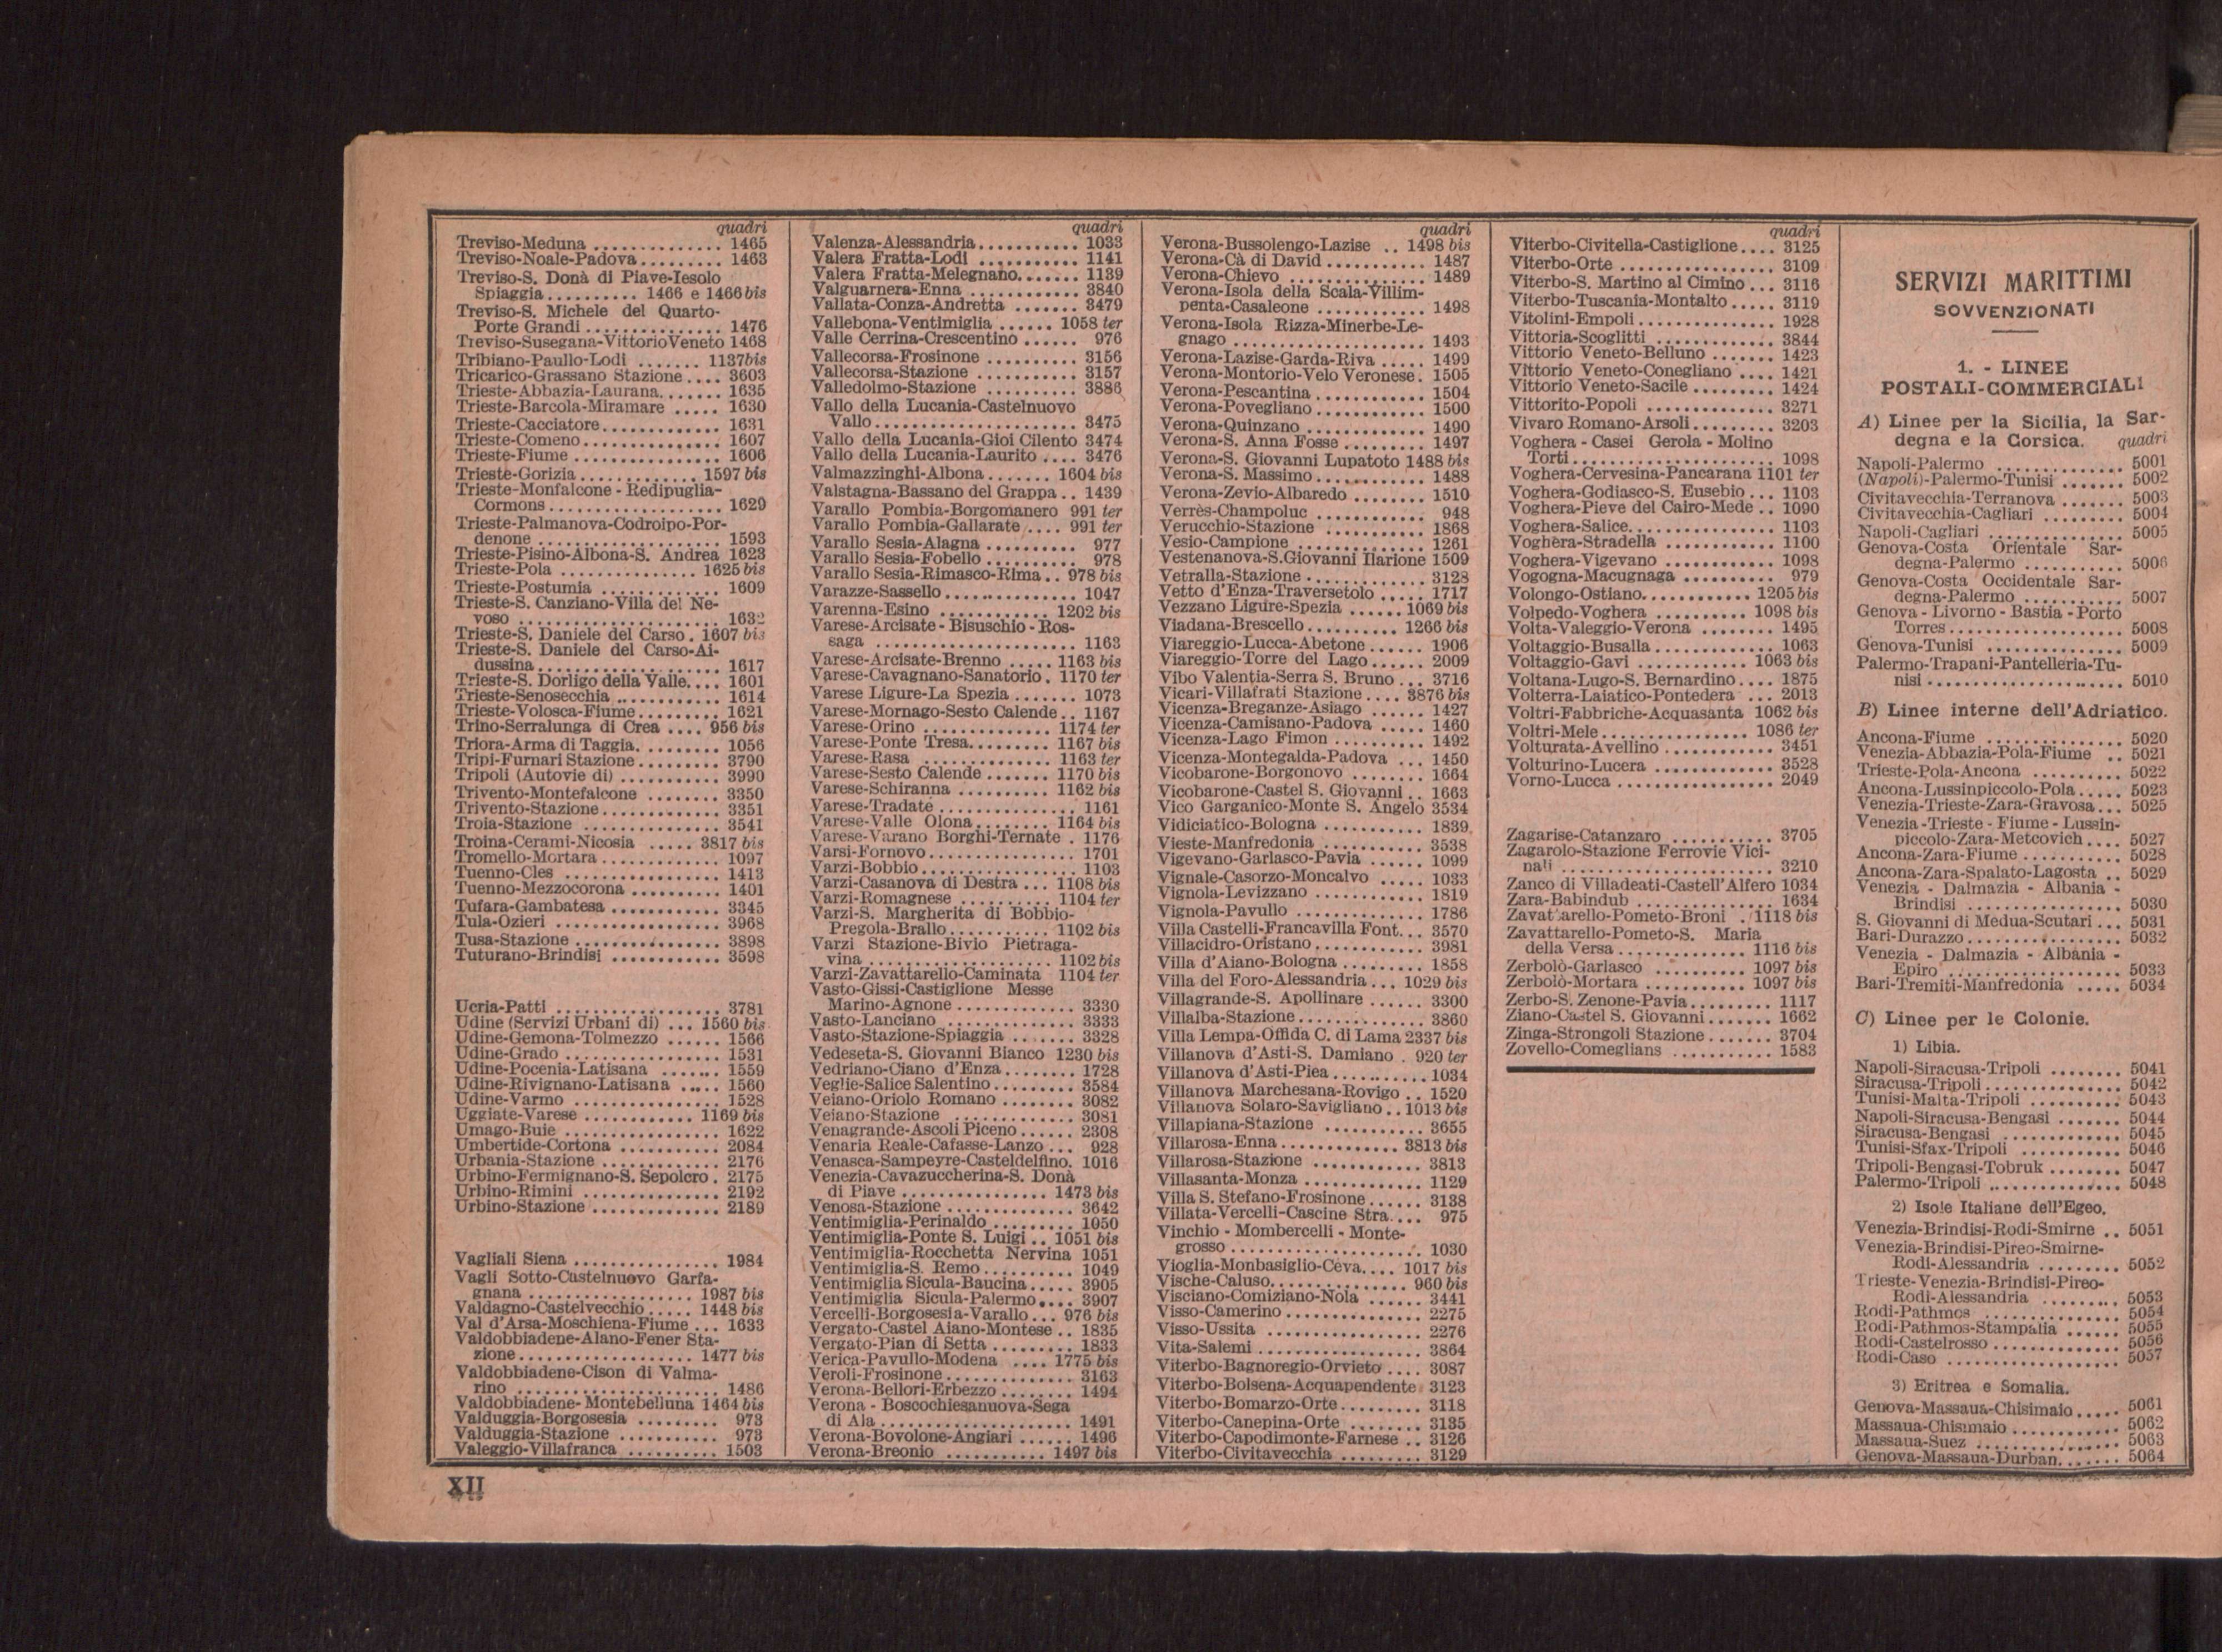 quadri
Treviso-Meduna .............. 1465
Treviso-Noale-Padova ......... 1463
Treviso-S. Donà di Piave-Iesolo
Spiaggia .......... 1466 e 1466 bis
Treviso-S. Michele del Quarto-
Porte Grandi ............... 1476
Treviso-Susegana-Vittorio Veneto 1468
Tribiano-Paullo-Lodi ....... 1137bis
Tricarico-Grassano Stazione .... 3603
Trieste-Abbazia-Laurana ....... 1635
Trieste-Barcola-Miramare ..... 1630
Trieste-Cacciatore ............. 1631
Trieste-Comeno ............... 1607
Trieste-Fiume ................ 1606
Trieste-Gorizia ............. 1597 bis
Trieste-Monfalcone - Redipuglia-
Cormons ................... 1629
Trieste-Palmanova-Codroipo-Por-
denone .................... 1593
Trieste-Pisino-Albona-S. Andrea 1623
Trieste-Pola ............... 1625 bis
Trieste-Postumia ............. 1609
Trieste-S. Canziano-Villa del Ne-
voso ...................... 1632
Trieste-S. Daniele del Carso . 1607 bis
Trieste-S. Daniele del Carso-Ai-
dussina .................... 1617
Trieste-S. Dorligo della Valle.... 1601
Trieste-Senosecchia ........... 1614
Trieste-Volosca-Fiume ......... 1621
Trino-Serralunga di Crea .... 956 bis
Triora-Arma di Taggia. ........ 1056
Tripi-Furnari Stazione ......... 3790
Tripoli (Autovie di) ........... 3990
Trivento-Montefalcone ........ 3350
Trivento-Stazione ............. 3351
Troia-Stazione ............... 3541
Troina-Cerami-Nicosia ..... 3817 bis
Tromello-Mortara ............. 1097
Tuenno-Cles ................. 1413
Tuenno-Mezzocorona .......... 1401
Tufara-Gambatesa ............ 3345
Tula-Ozieri .................. 3968
Tusa-Stazione ................ 3898
Tuturano-Brindisi ............ 3598
Ucria-Patti .................. 3781
Udine (Servizi Urbani di) ... 1560 bis
Udine-Gemona-Tolmezzo ...... 1566
Udine-Grado ................. 1531
Udine-Pocenia-Latisana ....... 1559
Udine-Rivignano-Latisana ..... 1560
Udine-Varmo ................ 1528
Uggiate-Varese ............ 1169 bis
Umago-Buie ................. 1622
Umbertide-Cortona ........... 2084
Urbania-Stazione ............. 2176
Urbino-Fermignano-S. Sepolcro . 2175
Urbino-Rimini ............... 2192
Urbino-Stazione .............. 2189
Vagliali Siena ................ 1984
Vagli Sotto-Castelnuovo Garfa-
gnana .................. 1987 bis
Valdagno-Castelvecchio ..... 1448 bis
Val d'Arsa-Moschiena-Fiume ... 1633
Valdobbiadene-Alano-Fener Sta-
zione ................... 1477 bis
Valdobbiadene-Cison di Valma-
rino ...................... 1486
Valdobbiadene-Montebelluna 1464 bis
Valduggia-Borgosesia ......... 973
Valduggia-Stazione ........... 973
Valeggio-Villafranca .......... 1503
quadri
Valenza-Alessandria ........... 1033
Valera Fratta-Lodi ........... 1141
Valera Fratta-Melegnano ....... 1139
Valguarnera-Enna ............ 3840
Vallata-Conza-Andretta ....... 3479
Vallebona-Ventimiglia ...... 1058 ter
Valle Cerrina-Crescentino ...... 976
Vallecorsa-Frosinone .......... 3156
Vallecorsa-Stazione ........... 3157
Valledolmo-Stazione .......... 3886
Vallo della Lucania-Castelnuovo
Vallo ...................... 3475
Vallo della Lucania-Gioi Cilento 3474
Vallo della Lucania-Laurito .... 3476
Valmazzinghi-Albona ....... 1604 bis
Valstagna-Bassano del Grappa .. 1439
Varallo Pombia-Borgomanero 991 ter
Varallo Pombia-Gallarate .... 991 ter
Varallo Sesia-Alagna .......... 977
Varallo Sesia-Fobello .......... 978
Varallo Sesia-Rimasco-Rima .. 978 bis
Varazze-Sassello .............. 1047
Varenna-Esino ............ 1202 bis
Varese-Arcisate - Bisuschio - Ros-
saga ...................... 1163
Varese-Arcisate-Brenno ..... 1163 bis
Varese-Cavagnano-Sanatorio . 1170 ter
Varese Ligure-La Spezia ....... 1073
Varese-Mornago-Sesto Calende .. 1167
Varese-Orino .............. 1174 ter
Varese-Ponte Tresa ......... 1167 bis
Varese-Rasa .............. 1163 ter
Varese-Sesto Calende ....... 1170 bis
Varese-Schiranna .......... 1162 bis
Varese-Tradate ............... 1161
Varese-Valle Olona ........ 1164 bis
Varese-Varano Borghi-Ternate . 1176
Varsi-Fornovo ................ 1701
Varzi-Bobbio ................. 1103
Varzi-Casanova di Destra ... 1108 bis
Varzi-Romagnese .......... 1104 ter
Varzi-S. Margherita di Bobbio-
Pregola-Brallo ........... 1102 bis
Varzi Stazione-Bivio Pietraga-
vina .................... 1102 bis
Varzi-Zavattarello-Caminata 1104 ter
Vasto-Gissi-Castiglione Messe
Marino-Agnone ............. 3330
Vasto-Lanciano .............. 3333
Vasto-Stazione-Spiaggia ....... 3328
Vedeseta-S. Giovanni Bianco 1230 bis
Vedriano-Ciano d'Enza ........ 1728
Veglie-Salice Salentino ......... 3584
Veiano-Oriolo Romano ........ 3082
Veiano-Stazione ............. 3081
Venagrande-Ascoli Piceno ...... 2308
Venaria Reale-Cafasse-Lanzo ... 928
Venasca-Sampeyre-Casteldelfino. 1016
Venezia-Cavazuccherina-S. Donà
di Piave ................ 1473 bis
Venosa-Stazione .............. 3642
Ventimiglia-Perinaldo ......... 1050
Ventimiglia-Ponte S. Luigi .. 1051 bis
Ventimiglia-Rocchetta Nervina 1051
Ventimiglia-S. Remo .......... 1049
Ventimiglia Sicula-Baucina ..... 3905
Ventimiglia Sicula-Palermo .... 3907
Vercelli-Borgosesia-Varallo ... 976 bis
Vergato-Castel Aiano-Montese .. 1835
Vergato-Pian di Setta ......... 1833
Verica-Pavullo-Modena .... 1775 bis
Veroli-Frosinone .............. 3163
Verona-Bellori-Erbezzo ........ 1494
Verona - Boscochiesanuova-Sega
di Ala ..................... 1491
Verona-Bovolone-Angiari ...... 1496
Verona-Breonio ........... 1497 bis
quadri
Verona-Bussolengo-Lazise .. 1498 bis
Verona-Cà di David ........... 1487
Verona-Chievo ............... 1489
Verona-Isola della Scala-Villim-
penta-Casaleone ............ 1498
Verona-Isola Rizza-Minerbe-Le-
gnago ..................... 1493
Verona-Lazise-Garda-Riva ..... 1499
Verona-Montorio-Velo Veronese. 1505
Verona-Pescantina ............ 1504
Verona-Povegliano ............ 1500
Verona-Quinzano ............. 1490
Verona-S. Anna Fosse ......... 1497
Verona-S. Giovanni Lupatoto 1488 bis
Verona-S. Massimo ............ 1488
Verona-Zevio-Albaredo ........ 1510
Verrès-Champoluc ............ 948
Verucchio-Stazione ........... 1868
Vesio-Campione .............. 1261
Vestenanova-S.Giovanni Ilarione 1509
Vetralla-Stazione ............. 3128
Vetto d'Enza-Traversetolo ..... 1717
Vezzano Ligure-Spezia ...... 1069 bis
Viadana-Brescello .......... 1266 bis
Viareggio-Lucca-Abetone ...... 1906
Viareggio-Torre del Lago ...... 2009
Vibo Valentia-Serra S. Bruno ... 3716
Vicari-Villafrati Stazione .... 3876 bis
Vicenza-Breganze-Asiago ...... 1427
Vicenza-Camisano-Padova ..... 1460
Vicenza-Lago Fimon .......... 1492
Vicenza-Montegalda-Padova ... 1450
Vicobarone-Borgonovo ........ 1664
Vicobarone-Castel S. Giovanni .. 1663
Vico Garganico-Monte S. Angelo 3534
Vidiciatico-Bologna ........... 1839
Vieste-Manfredonia ........... 3538
Vigevano-Garlasco-Pavia ...... 1099
Vignale-Casorzo-Moncalvo ..... 1033
Vignola-Levizzano ............ 1819
Vignola-Pavullo .............. 1786
Villa Castelli-Francavilla Font... 3570
Villacidro-Oristano ............ 3981
Villa d'Aiano-Bologna ......... 1858
Villa del Foro-Alessandria ... 1029 bis
Villagrande-S. Apollinare ...... 3300
Villalba-Stazione .............. 3860
Villa Lempa-Offida C. di Lama 2337 bis
Villanova d'Asti-S. Damiano . 920 ter
Villanova d'Asti-Piea .......... 1034
Villanova Marchesana-Rovigo .. 1520
Villanova Solaro-Savigliano .. 1013 bis
Villapiana-Stazione ........... 3655
Villarosa-Enna ............ 3813 bis
Villarosa-Stazione ............ 3813
Villasanta-Monza ............. 1129
Villa S. Stefano-Frosinone ...... 3138
Villata-Vercelli-Cascine Stra .... 975
Vinchio - Mombercelli - Monte-
grosso ..................... 1030
Vioglia-Monbasiglio-Ceva .... 1017 bis
Vische-Caluso ............... 960 bis
Visciano-Comiziano-Nola ...... 3441
Visso-Camerino ............... 2275
Visso-Ussita ................. 2276
Vita-Salemi .................. 3864
Viterbo-Bagnoregio-Orvieto .... 3087
Viterbo-Bolsena-Acquapendente 3123
Viterbo-Bomarzo-Orte ......... 3118
Viterbo-Canepina-Orte ........ 3135
Viterbo-Capodimonte-Farnese .. 3126
Viterbo-Civitavecchia ......... 3129
quadri
Viterbo-Civitella-Castiglione .... 3125
Viterbo-Orte ................. 3109
Viterbo-S. Martino al Cimino ... 3116
Viterbo-Tuscania-Montalto ..... 3119
Vitolini-Empoli ............... 1928
Vittoria-Scoglitti ............. 3844
Vittorio Veneto-Belluno ....... 1423
Vittorio Veneto-Conegliano .... 1421
Vittorio Veneto-Sacile ......... 1424
Vittorito-Popoli .............. 3271
Vivaro Romano-Arsoli ......... 3203
Voghera - Casei Gerola - Molino
Torti ...................... 1098
Voghera-Cervesina-Pancarana 1101 ter
Voghera-Godiasco-S. Eusebio ... 1103
Voghera-Pieve del Cairo-Mede .. 1090
Voghera-Salice ................ 1103
Voghera-Stradella ............ 1100
Voghera-Vigevano ............ 1098
Vogogna-Macugnaga .......... 979
Volongo-Ostiano ............ 1205 bis
Volpedo-Voghera .......... 1098 bis
Volta-Valeggio-Verona ........ 1495
Voltaggio-Busalla ............. 1063
Voltaggio-Gavi ............ 1063 bis
Voltana-Lugo-S. Bernardino .... 1875
Volterra-Laiatico-Pontedera ... 2013
Voltri-Fabbriche-Acquasanta 1062 bis
Voltri-Mele ................ 1086 ter
Volturata-Avellino ............ 3451
Volturino-Lucera ............. 3528
Vorno-Lucca ................. 2049
Zagarise-Catanzaro ........... 3705
Zagarolo-Stazione Ferrovie Vici-
nali ....................... 3210
Zanco di Villadeati-Castell'Alfero 1034
Zara-Babindub ............... 1634
Zavattarello-Pometo-Broni . 1118 bis
Zavattarello-Pometo-S. Maria
della Versa .............. 1116 bis
Zerbolò-Garlasco .......... 1097 bis
Zerbolò-Mortara ........... 1097 bis
Zerbo-S. Zenone-Pavia ......... 1117
Ziano-Castel S. Giovanni ....... 1662
Zinga-Strongoli Stazione ....... 3704
Zovello-Comeglians ........... 1583
SERVIZI MARITTIMI
SOVVENZIONATI
1. - LINEE
POSTALI-COMMERCIALI
A) Linee per la Sicilia, la Sar-
degna e la Corsica. quadri
Napoli-Palermo .............. 5001
(Napoli)-Palermo-Tunisi ....... 5002
Civitavecchia-Terranova ....... 5003
Civitavecchia-Cagliari ......... 5004
Napoli-Cagliari ............... 5005
Genova-Costa Orientale Sar-
degna-Palermo ........... 5006
Genova-Costa Occidentale Sar-
degna-Palermo ........... 5007
Genova - Livorno - Bastia - Porto
Torres ................... 5008
Genova-Tunisi ............... 5009
Palermo-Trapani-Pantelleria-Tu-
nisi ...................... 5010
B) Linee interne dell'Adriatico.
Ancona-Fiume ............... 5020
Venezia-Abbazia-Pola-Fiume .. 5021
Trieste-Pola-Ancona .......... 5022
Ancona-Lussinpiccolo-Pola ..... 5023
Venezia-Trieste-Zara-Gravosa ... 5025
Venezia - Trieste - Fiume - Lussin-
piccolo-Zara-Metcovich .... 5027
Ancona-Zara-Fiume ........... 5028
Ancona-Zara-Spalato-Lagosta .. 5029
Venezia - Dalmazia - Albania -
Brindisi .................. 5030
S. Giovanni di Medua-Scutari ... 5031
Bari-Durazzo ................. 5032
Venezia - Dalmazia - Albania -
Epiro .................... 5033
Bari-Tremiti-Manfredonia ..... 5034
C) Linee per le Colonie.
1) Libia.
Napoli-Siracusa-Tripoli ........ 5041
Siracusa-Tripoli ............... 5042
Tunisi-Malta-Tripoli .......... 5043
Napoli-Siracusa-Bengasi ....... 5044
Siracusa-Bengasi ............. 5045
Tunisi-Sfax-Tripoli ........... 5046
Tripoli-Bengasi-Tobruk ........ 5047
Palermo-Tripoli ............... 5048
2) Isole Italiane dell'Egeo.
Venezia-Brindisi-Rodi-Smirne .. 5051
Venezia-Brindisi-Pireo-Smirne-
Rodi-Alessandria .......... 5052
Trieste-Venezia-Brindisi-Pireo-
Rodi-Alessandria ......... 5053
Rodi-Pathmos ............... 5054
Rodi-Pathmos-Stampalia ...... 5055
Rodi-Castelrosso .............. 5056
Rodi-Caso ................... 5057
3) Eritrea e Somalia.
Genova-Massaua-Chisimaio ..... 5061
Massaua-Chisimaio ............ 5062
Massaua-Suez ................ 5063
Genova-Massaua-Durban ....... 5064
XII